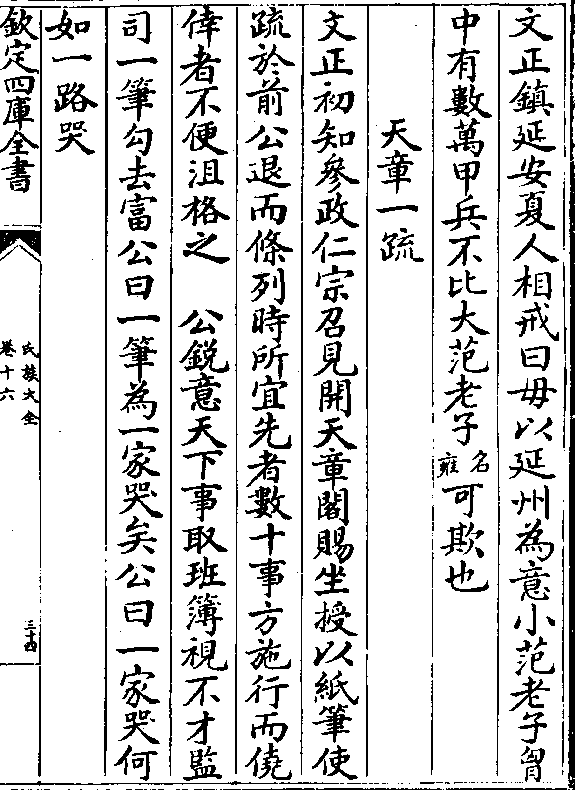 文正鎮延安夏人相戒曰毋以延州為意小范老子胷
中有數萬甲兵不比大范老子名雍可欺也
天章一疏
文正初知參政仁宗召見開天章閣賜坐授以紙筆使
疏於前公退而條列時所宜先者數十事方施行而僥
倖者不便沮格之　公鋭意天下事取班簿視不才監
司一筆勾去富公曰一筆為一家哭矣公曰一家哭何
如一路哭
欽定四庫全書
氏族大全
卷十六
三十四